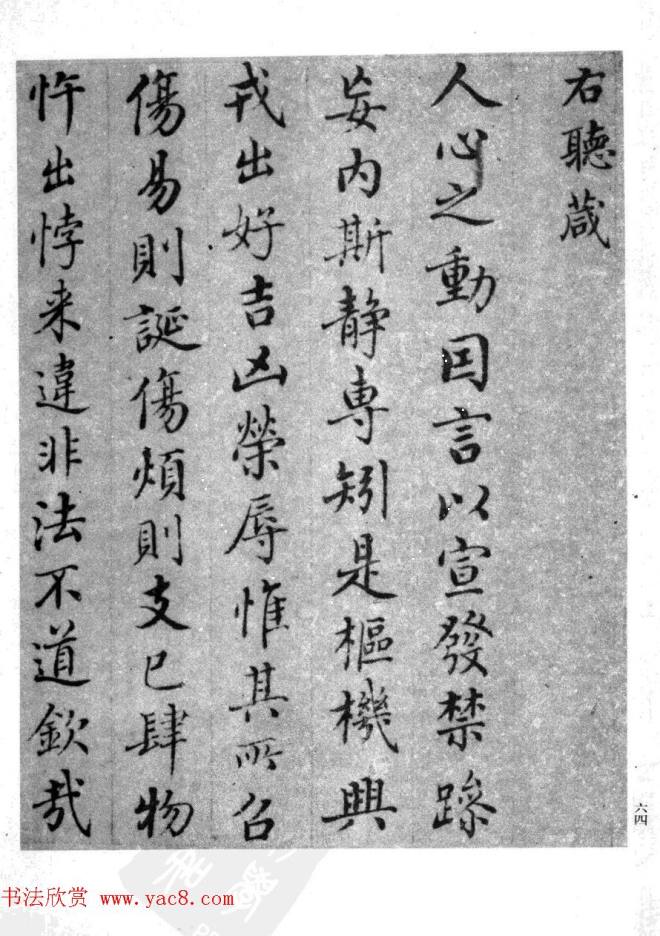 右聽葴
人心之動因言以宣發禁躁
妄内斯静專矧是樞機興
戎出好吉凶榮辱惟其所召
傷易則誕傷煩則支已肆物
忤出悖来違非法不道欽哉
六四
书法欣赏 www.yac8.com